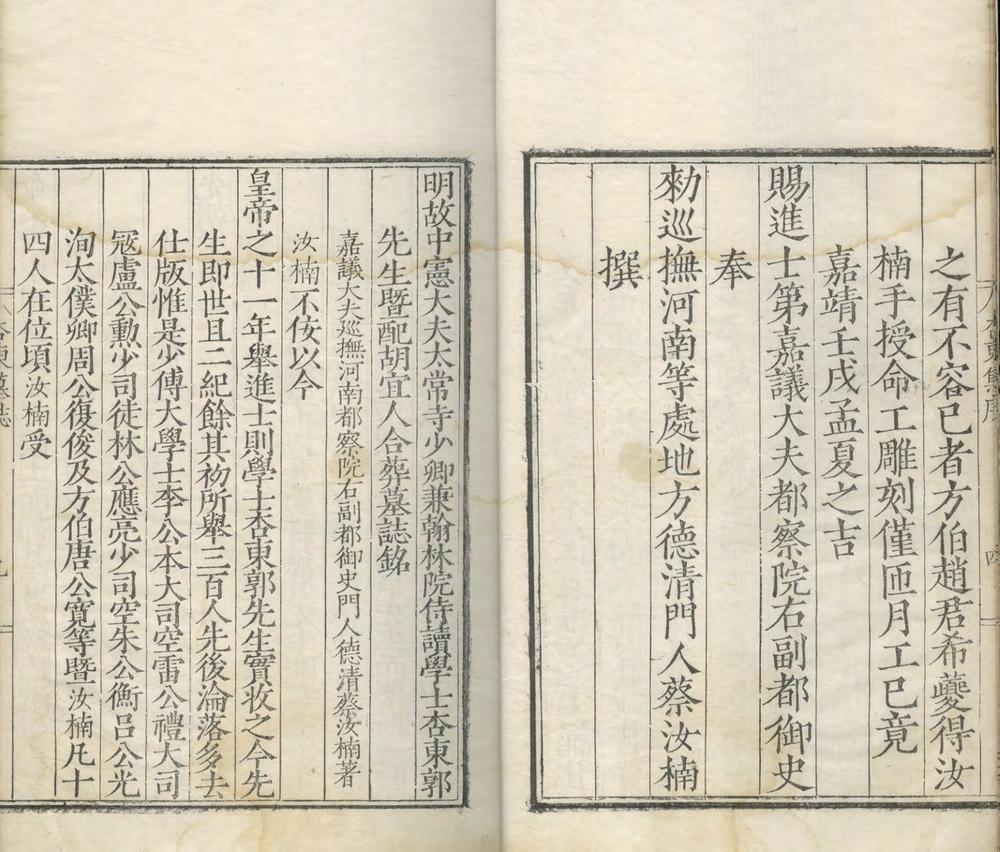 之有不容已者方伯趙君希夔得汝
楠手授命工雕刻僅匝月工已竟
嘉靖壬戌孟夏之吉
賜進士第嘉議大夫都察院右副都御史
奉
勑巡撫河南等處地方德清門人蔡汝楠
撰
明故中憲大夫太常寺少卿兼翰林院侍讀學士杏東郭
先生暨配胡宜人合葬墓誌銘
嘉議大夫巡撫河南都察院右副都御史門人德清蔡汝楠著
汝楠不佞以今
皇帝之十一年舉進士則學士杏東郭先生實收之今先
生即世且二紀餘其初所舉三百人先後淪落多去
仕版惟是少傅大學士李公本大司空雷公禮大司
寇盧公勳少司徒林公應亮少司空朱公衡呂公光
洵太僕卿周公復俊及方伯唐公寬等暨汝楠凡十
四人在位頃汝楠受
杏東墓誌